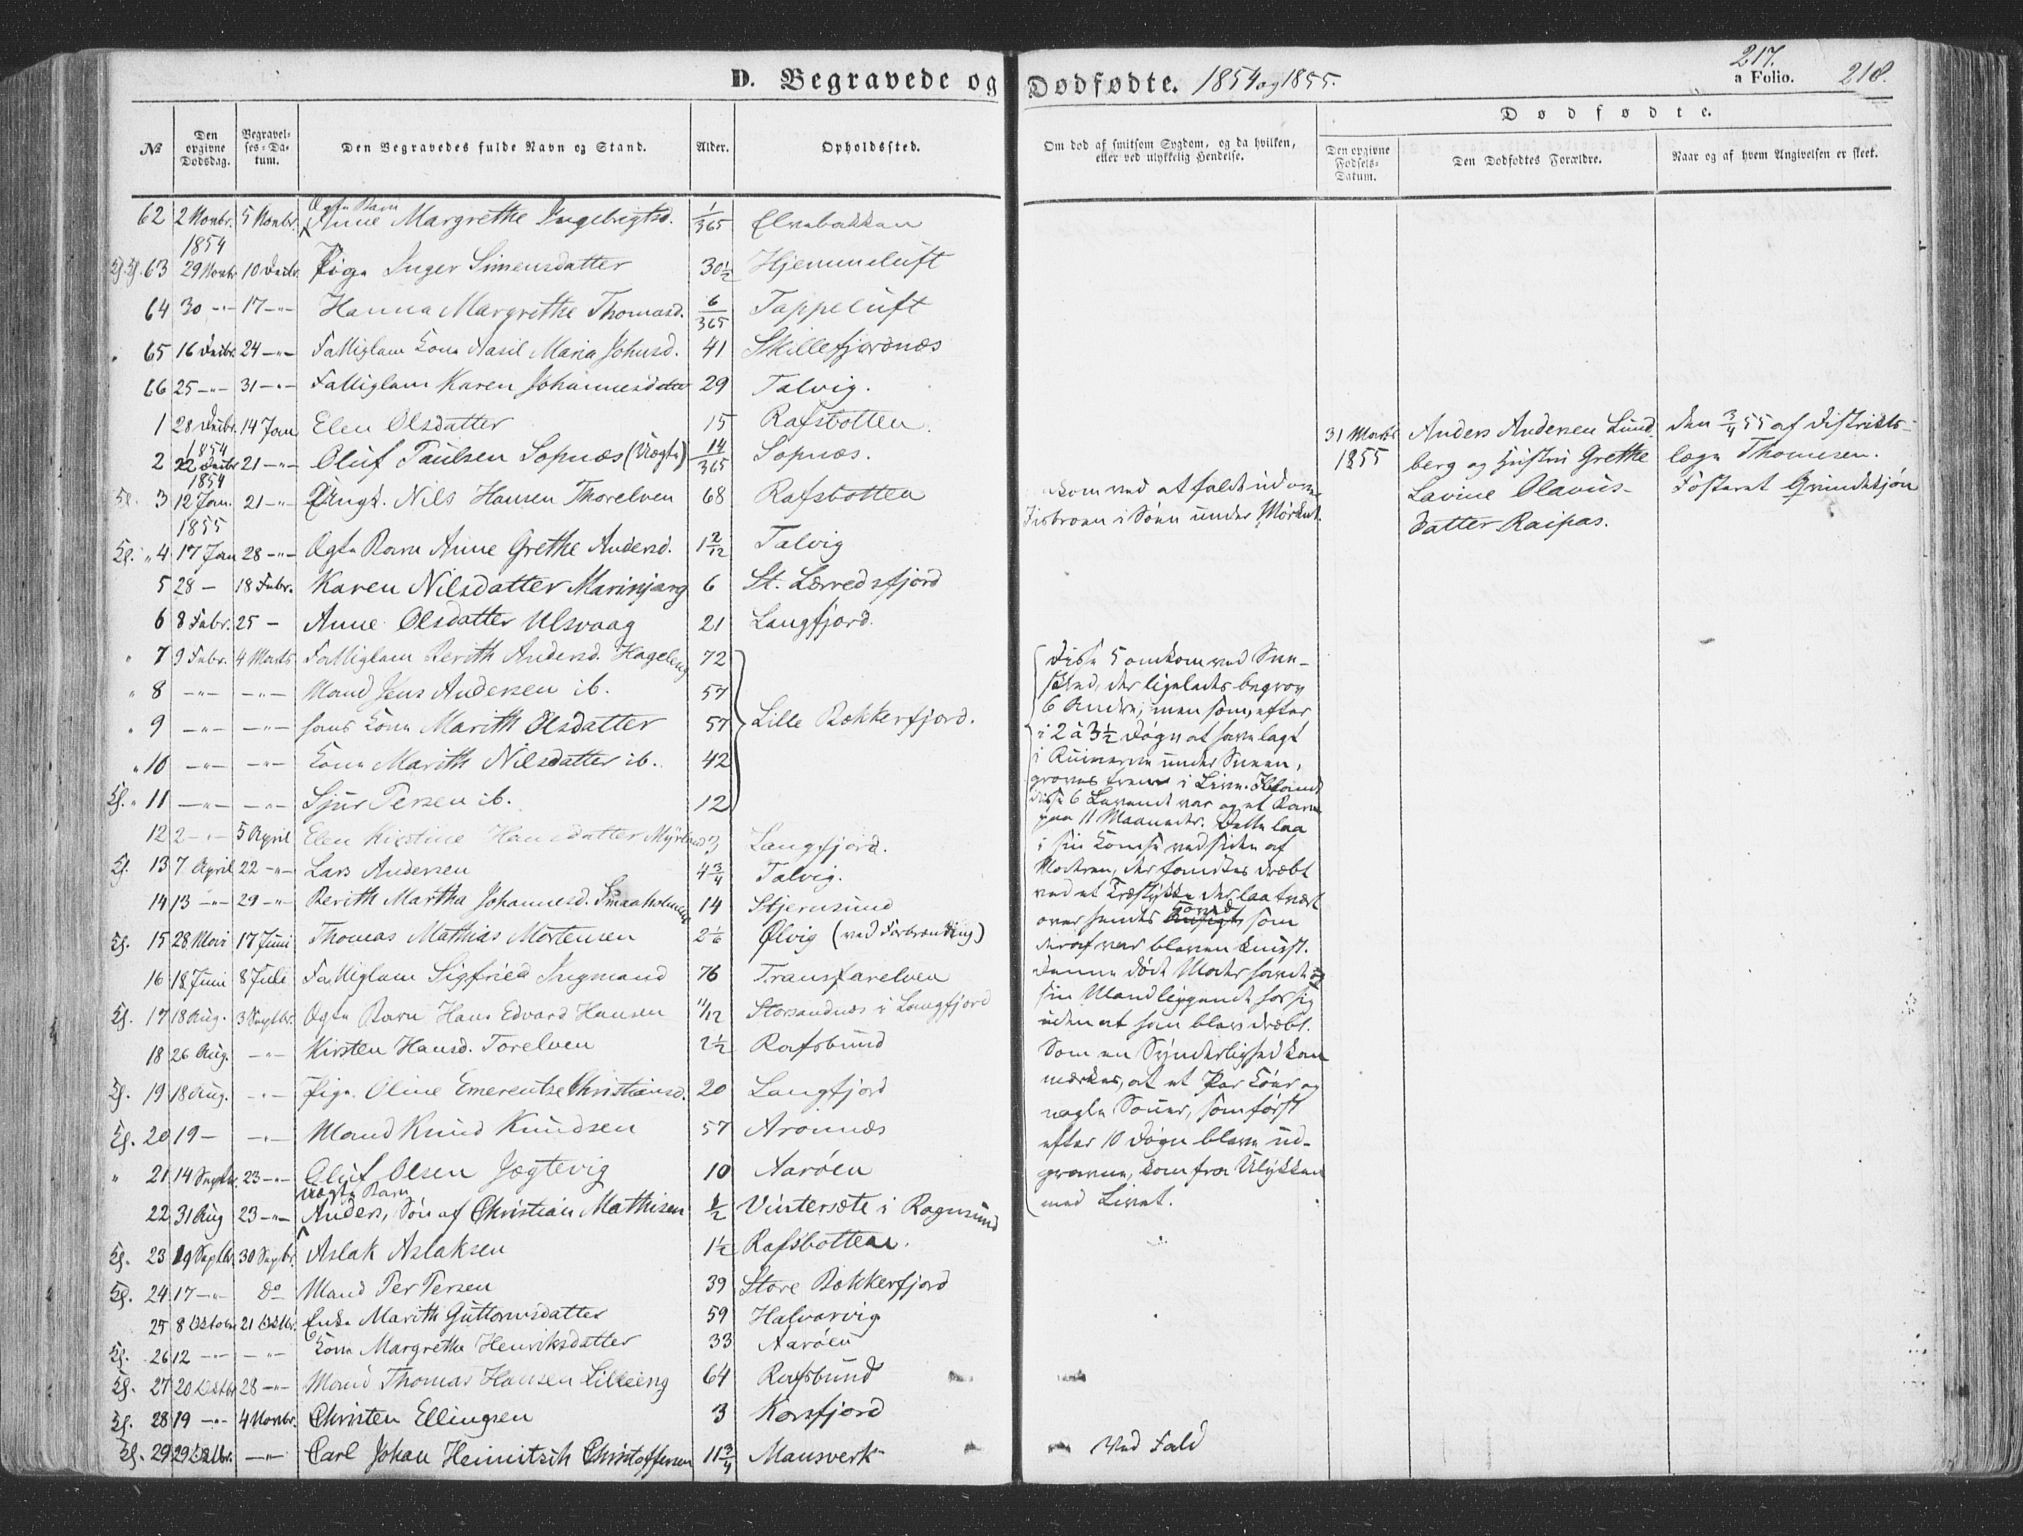 D. Begravede og Dødfødte. 1854 og 1855.
217.
a Folio. 218.
№ Den opgivne Dødsdag. Begravelses-Datum. Den Begravedes fulde Navn og Stand. Alder. Opholdssted.
Om død af smitsom Sygdom, og da hvilken, eller ved ulykkelig Hendelse.
Dødfødte.
Den opgivne Fødsels-Datum. Den Dødfødtes Forældre. Naar og af hvem Angivelsen er skeet.
62 2 Novbr. 1854 5 Novbr. Ægte Barn Anne Margrethe Ingebrigtsd. 1/365 Elvebakken
63 29 Novbr 10 Decbr. Pige Inger Simensdatter 30½ Hjemmeluft
64 30 -"- 17 -"- Hanna Margrethe Thomasd. 6/365 Tappeluft
65 16 Decbr. 24 -"- Fattiglem Kone Maria Johnsd. 41 Skillefjordnæs
66 25 -"- 31 -"- Fattiglem Karen Johannesdatter 29 Talvig.
1 28 Decbr. 1854 14 Jan Elen Olsdatter 15 Rafsbotten.
2 22 Decbr 1854 21 -"- Oluf Paulsen Sopnæs (Uægte) 14/365 Sopnæs.
3 12 Jan. 1855 21 -"- Nils Hansen Thorelven 68 Rafsbotten
4 17 Jan 28 -"- Ægte Barn Anne Grethe Andersd. 1 2/12 Talvig
5 28 - 18 Febr. Karen Nilsdatter Marinjarg 6 St. Lærredsfjord
6 8 Febr. 25 - Anne Olsdatter Ulsvaag 21 Langfjord.
7 9 Febr. 4 Marts Fattiglem Berith Andersd. Hageleng 72
8 -"- -"- Mand Jens Andersen ib. 57
9 -"- -"- hans Kone Marith Olsdatter 57 Lille Bekkerfjord.
10 -"- -"- Kone Marith Nilsdatter ib. 42
11 -"- -"- Sjur Persen ib. 12
12 2 -"- 5 April Elen Kirstine Hansdatter Myrlund 3 Langfjord.
13 7 April 22 -"- Lars Andersen 4¾ Talvig.
14 13 -"- 29 -"- Berith Martha Johannesd. 14 Stjernsund
15 28 Mai 17 Juni Thomas Mathias Mortensen 2 1/6 Ølvig (ved Forbrænding)
16 18 Juni 8 Juli Fattiglem Sigfried Ingmand 76 Transfarelven
17 18 Aug. 3 Septbr. Ægte Barn Hans Edvard Hansen 11/12 Storsandnæs i Langfjord
18 26 Aug. -"- Kirsten Hansd. Torelven 2½ Rafsbund
19 18 Aug. -"- Pige Oline Emerentse Christiansd. 20 Langfjord
20 19 - -"- Mand Knud Knudsen 57 Aronnæs
21 14 Septbr. 23 -"- Oluf Olsen Jægtevig 10 Aarøen
22 31 Aug 23 -"- Uægte Barn Anders, Søn af Christian Mathisen ½ Vintersæte i Rognsund
23 19 Septbr. 30 Septbr. Aslak Aslaksen 1½ Rafsbotten.
24 17 -"- do Mand Per Persen 39 Store Bekkerfjord
25 8 Octobr 21 Octbr. Enke Marith Guttormsdatter 59 Halvarvig
26 12 -"- -"- Kone Margrethe Henriksdatter 33 Aarøen
27 20 Octbr 28 -"- Mand Thomas Hansen Lilleeng 64 Rafsbund
28 19 -"- 4 Novbr. Christen Ellingsen 3 Korsfjord
29 29 Octbr. -"- Carl Johan Heinitsch Christoffersen 11¾ Mansverk
omkom ved at falde ud
Fisbroen i Søen under Mørket.
Disse 5 omkom ved Snee-
skred, der ligeledes begrov
6 Andre; men som, efter
i 2 à 3½ Døgn at have lagt
i Ruinerne under Sneen,
groves frem i Live. Iblandt
disse 6 Levende var og et Barn
paa 11 Maaneder. Dette laa
i sin Komse ved siden af
Moderen, der fandtes dræbt
ved et Træstykke der laa tvært
over hendes Hoved som
deraf var bleven knust.
Denne døde Moder havde og
sin Mand liggende hos sig
uden at han blev dræbt.
Som en Synderlighed kan
mærkes, at et Par Køer og
nogle Souer, som først
efter 10 Døgn bleve ud-
gravne, kom fra Ulykken
med Livet.
Ved Fald
31 Marts 1855
Anders Andersen Lund-
berg og Hustru Grethe
Lavine Olavus-
datter Raipas.
Den 3/4 55 af Districts-
læge Thomesen.
Fosteret